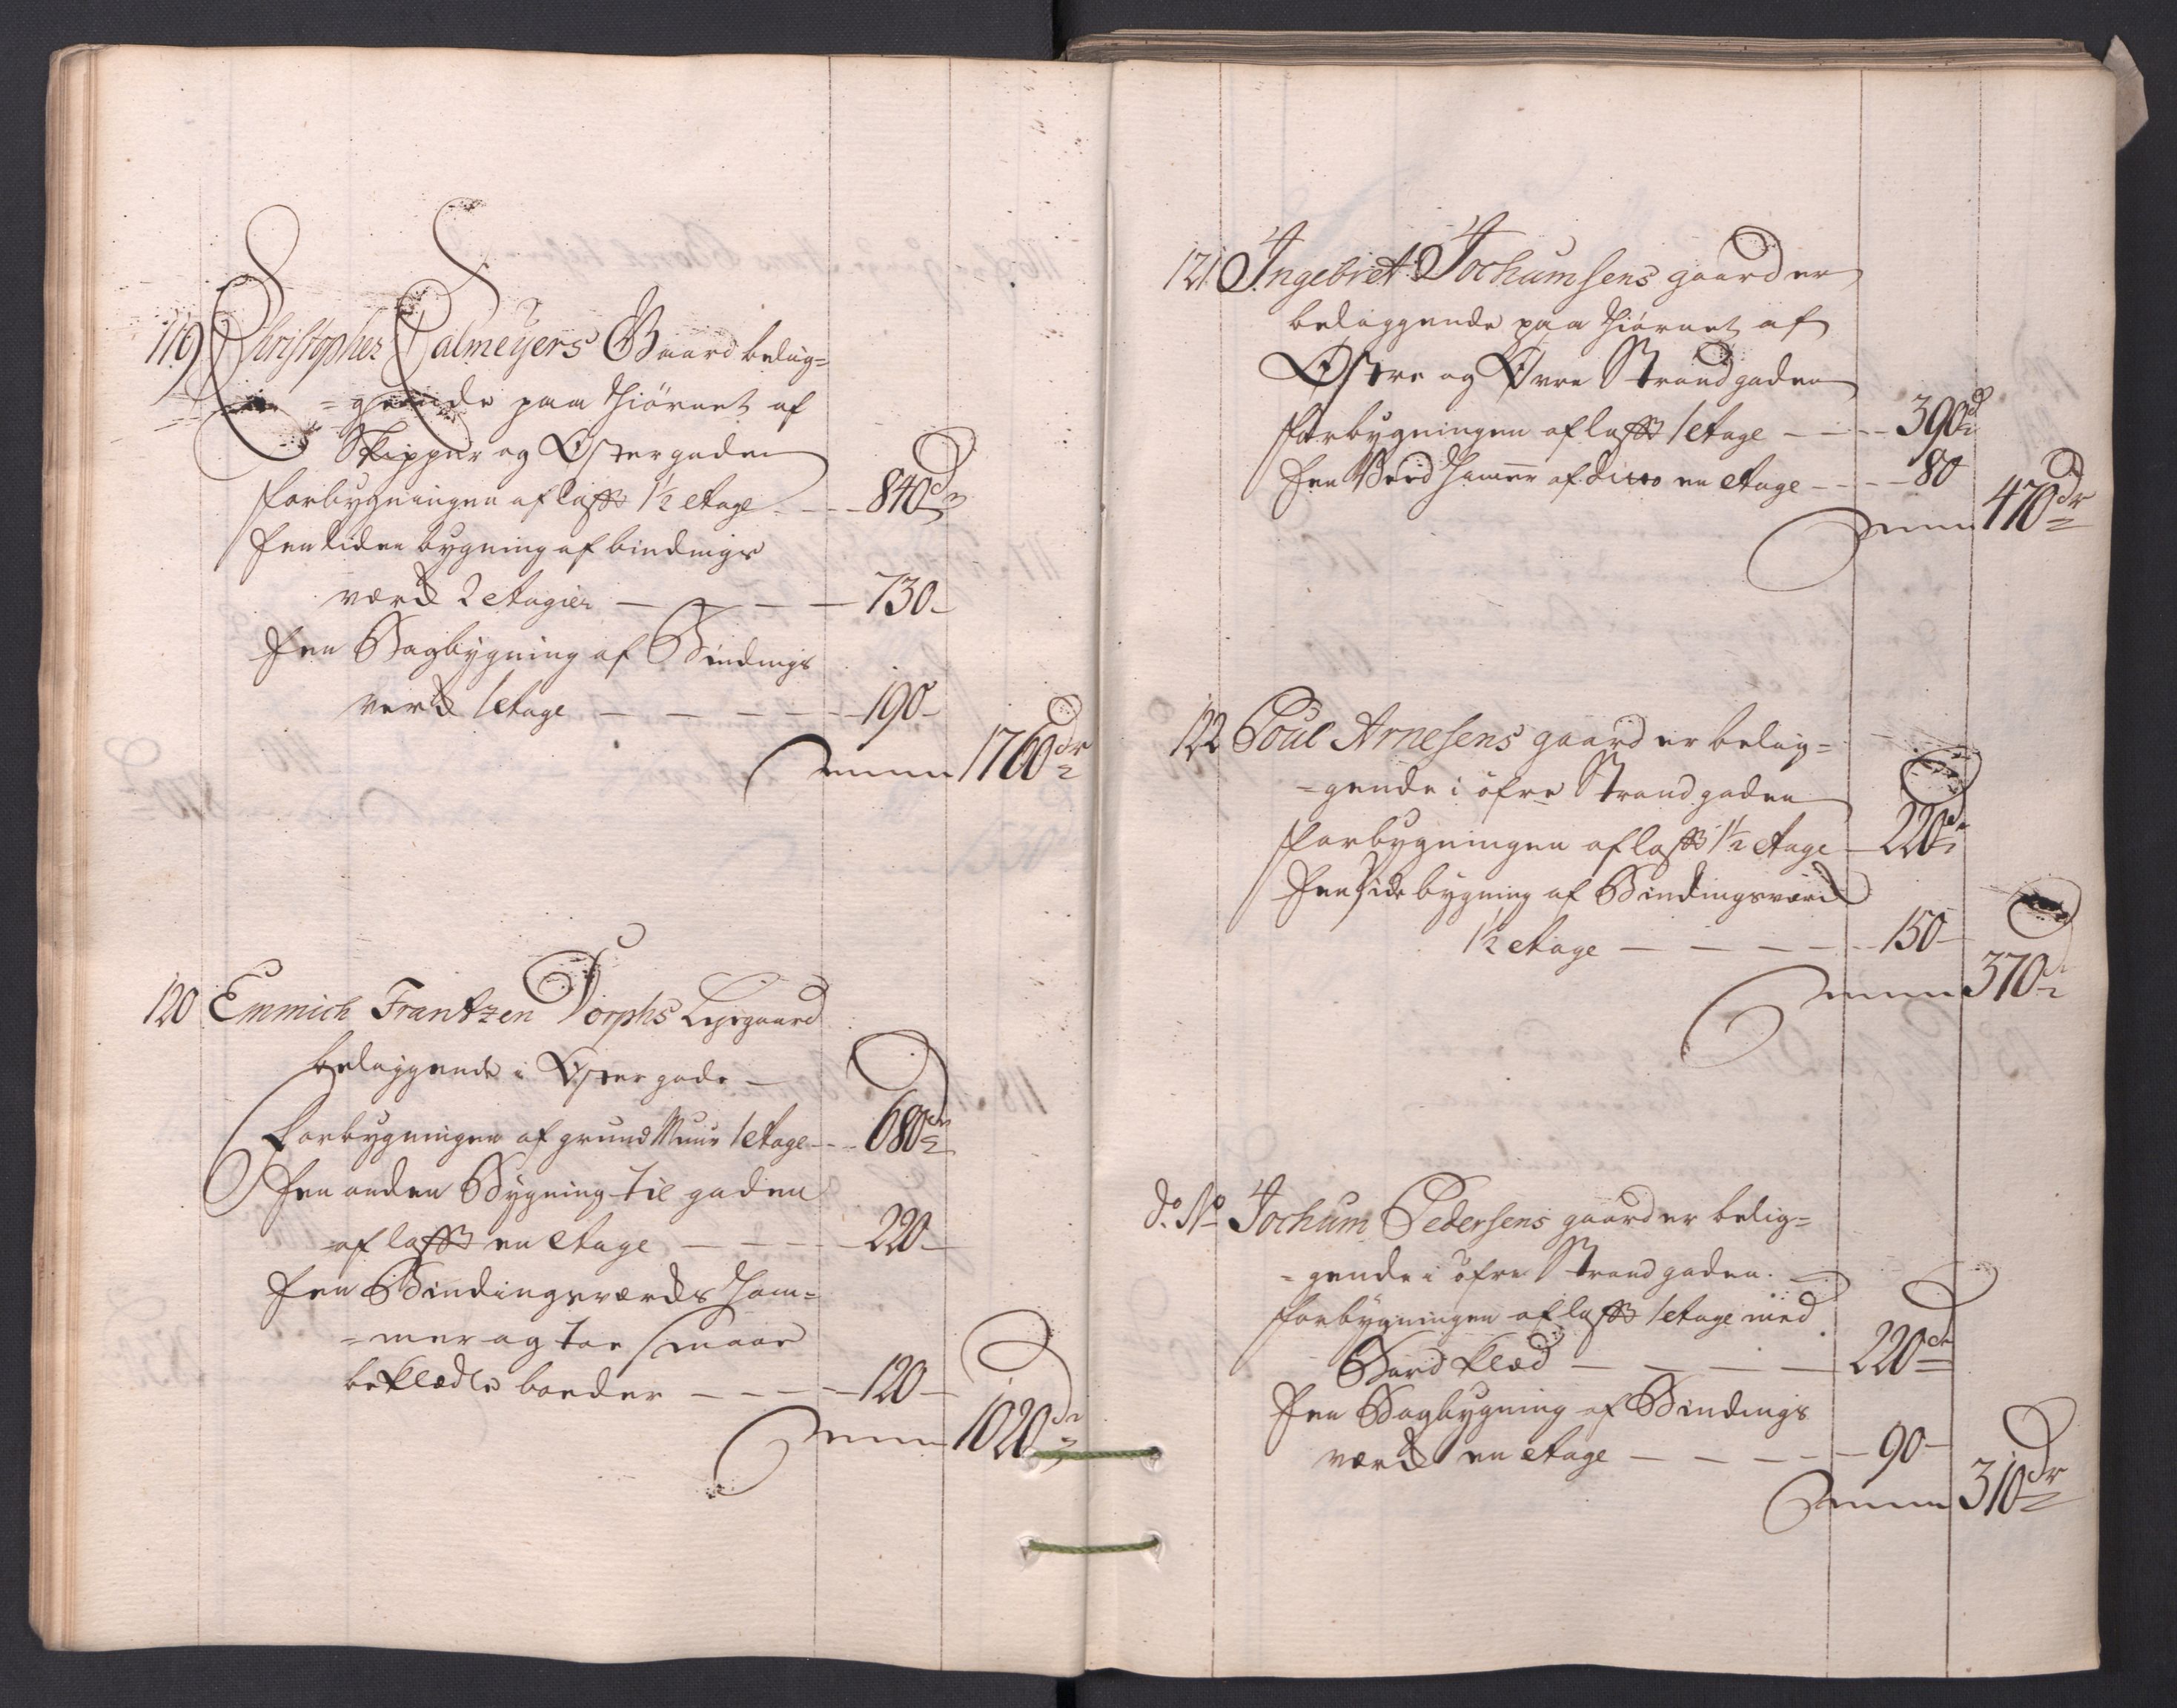 119 Christopher Calmeyers Gaard belig=
=gende paa Hiørnet af
Skipper og Østergaden
Forbygningen af lafft 1½ etage - - - 840 dr
Een siden bygning af bindings
værck 2 etagier - - - - 730 -
Een Bagbygning af Bindings
verck 1 etage - - - - - 190 -
Summa 1760 dr
120 Emmich Frantzen Dorphs Leyegaard
beliggende i Østergade -
Forbygningen af grund Muur 1 etage - - 680 dr
Een anden Bygning til gaden
af lafft en etage - - - - 220 -
Een Bindingsværcks Kam=
=mer og toe smaae
beklædte boeder - - - - 120 -
Summa 1020 dr
121 Ingebret Jochumsens gaard er
beliggende paa Hiørnet af
Østre og Øvre Strandgaden
Forbygningen af lafft 1 etage - - - 390 dr
Een Bord Kamer af ditto en etage - - - 80
Summa 470 dr
122 Poul Arnesens gaard er belig=
=gende i öfre Strandgaden
Forbygningen af lafft 1½ etage - 220 dr
Een Sidebygning af Bindingsværck
1½ etage - - - - - 150 -
Summa 370 dr
do. No Jochum Pedersens gaard er belig=
=gende i öfre Strandgaden. -
Forbygningen af lafft 1 etage med
Bord klæd - - - - 220 dr
Een Bagbygning af Bindings
værck en etage - - - - - 90 -
Summa 310 dr